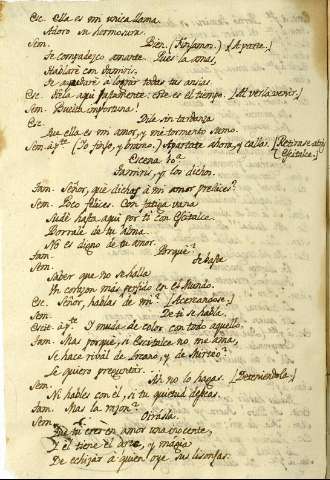 Esc. ella es mi unica llama.
Adoro su hermosura
Sem. Bien. (Finjamos.) [Aparte.]
Te compadezco amante. Pues la amas,
Hablaré con Tamiris,
Te ayudaré a lograr todas tus ansias.
Esc. Hela aqui justamente: este es el tiempo. [Al verla venir.]
Sem. Buelta importuna!
Esc. Dile sin tardanza
Que ella es mi amor, y mi tormento sumo.
Sem. à pte. (Yo finjo, y bramo.) Apartate ahora, y callas. [Retirase atras Escitalce.]
Escena 10.ª
Tamiris, y los dichos.
Tam. Señor, què dichas à mi amor predices?
Sem. Poco felices. Con fatiga vana
Sudè hasta aqui por ti con Escitalce.
Borrale de tu Alma.
No es digno de tu amor.
Tam. Porquè?
Sem. Te baste
Saber que no se halla
Un corazon mas perfido en el Mundo.
Esc. Señor, hablas de mi? [Acercandose.]
Sem. De ti se habla.
Escit. à pte. Y muda de color con todo aquello.
Tam. Mas porquè, si Escitalce no me ama,
Se hace rival de Ircano, y de Mirtèo?
Le quiero preguntar.
Sem. Ah no lo hagas. [Deteniendola.]
Ni hables con el, si tu quietud deseas.
Tam. Mas la razon?
Sem. Oirasla.
Tu eres en amor una inocente,
Y el tiene el arte, y magia
De echizar à quien oye sus lisonjas.